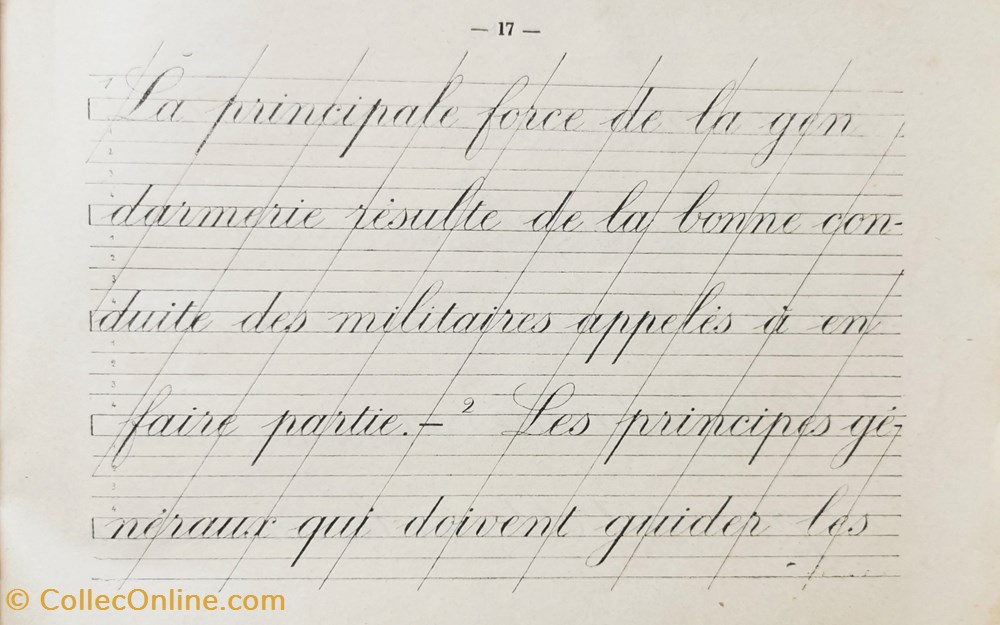 — 17 —
1 La principale force de la gen
darmerie résulte de la bonne con-
duite des militaires appelés à en
faire partie.— 2 Les principes gé-
néraux qui doivent guider les
© CollecOnline.com